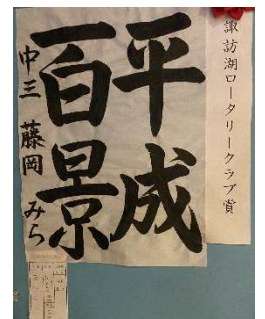 諏訪湖ロータリークラブ賞
平成
百景
中三 藤岡 みら